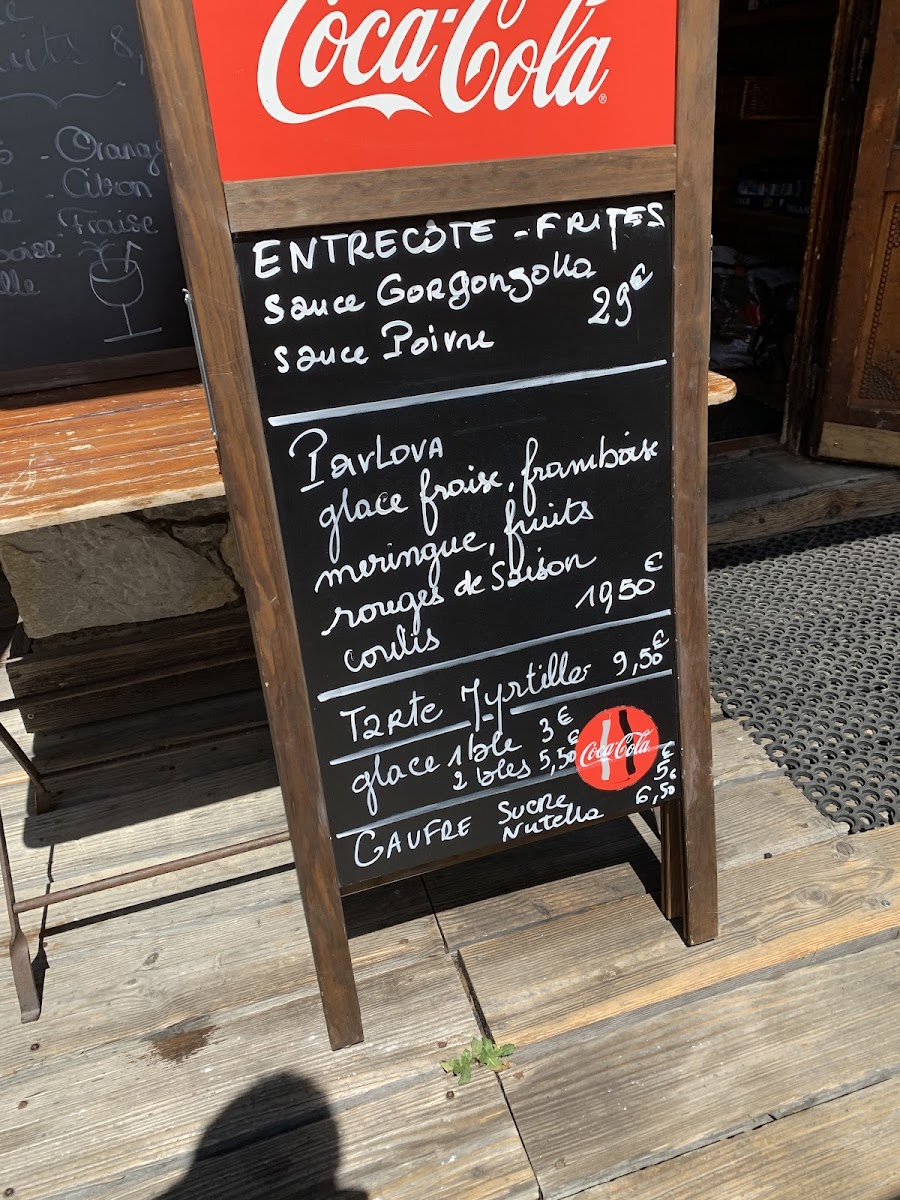 Coca-Cola
ENTRECÔTE - FRITES
Sauce Gorgonzolla
29€
Sauce Poivre
PavLova
glace fraise, framboise
meringue, fruits
rouges de Saison
coulis 19,50€
Tarte Myrtilles 9,50€
glace 1 ble 3€
2 bles 5,50€
Coca-Cola
GAUFRE Sucre 5€
Nutella 6,50€
Orang
- Citron
Fraise